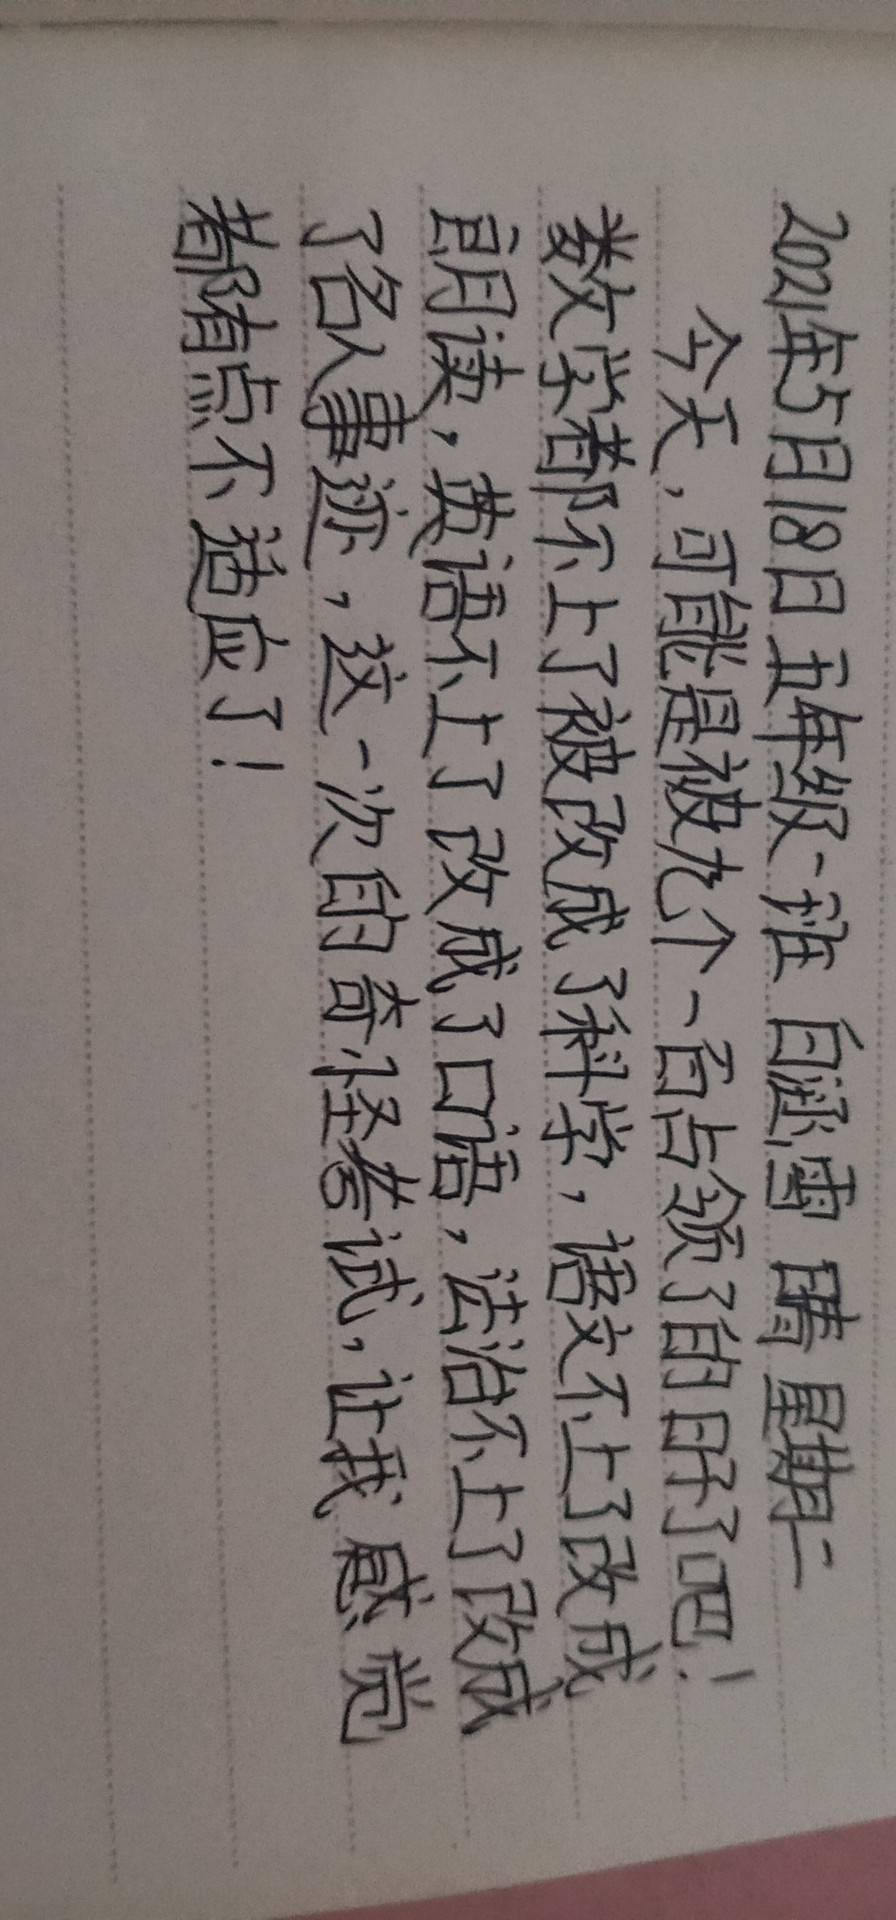 2021年5月18日 五年级一班 白涵雪 晴 星期二
今天，可能是被九个一百占领了的日子了吧！
数学都不上了被改成了科学，语文不上了改成
朗读，英语不上了改成了口语，法治不上了改成
了名人事迹，这一次的奇怪考试，让我感觉
都有点不适应了！